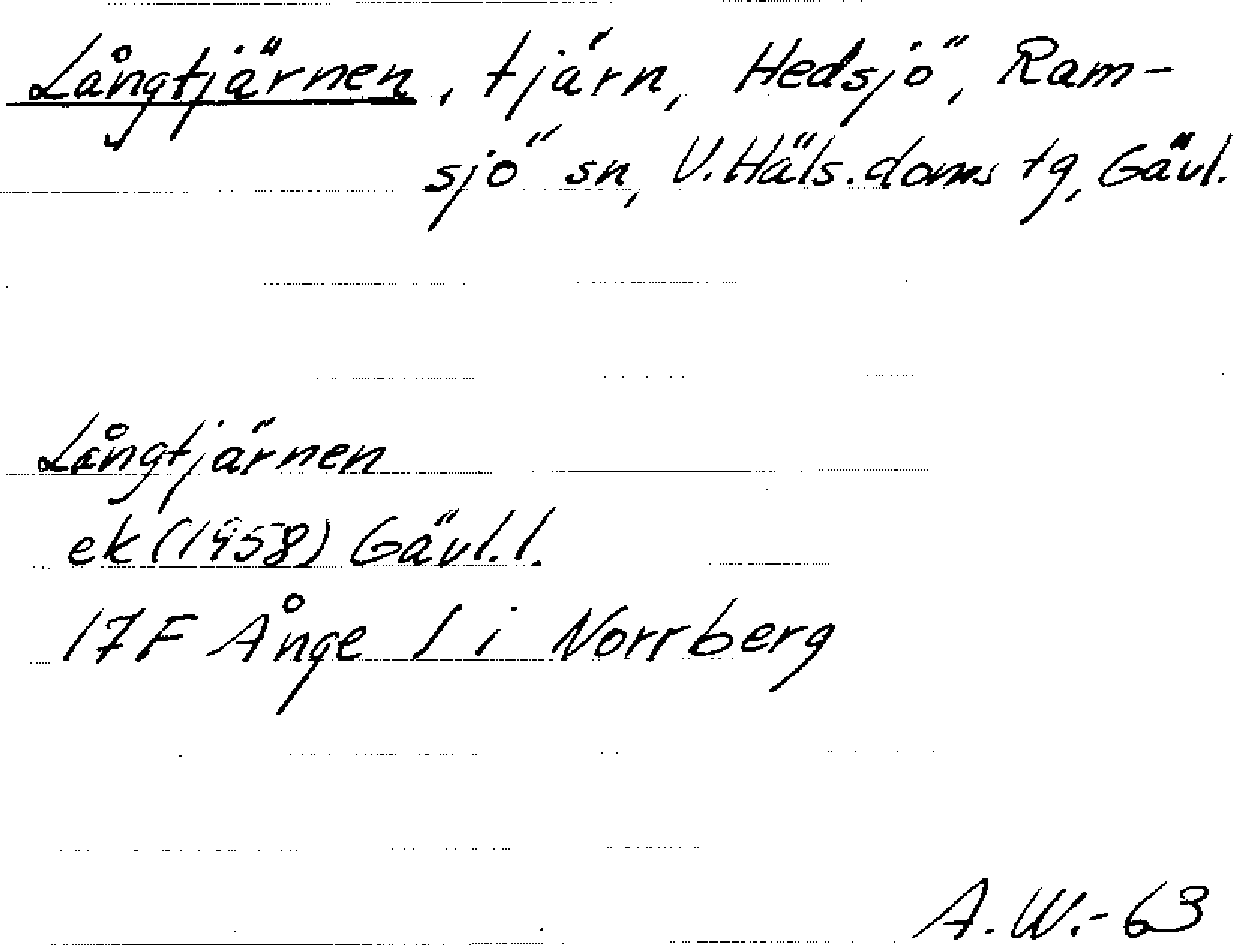 Långtjärnen, tjärn, Hedsjö, Ram-
sjö sn, V. Häls. doms tg, Gävl.
Långtjärnen
ek (1958) Gävl. l.
17F Ånge 1 i Norrberg
A.W.-63